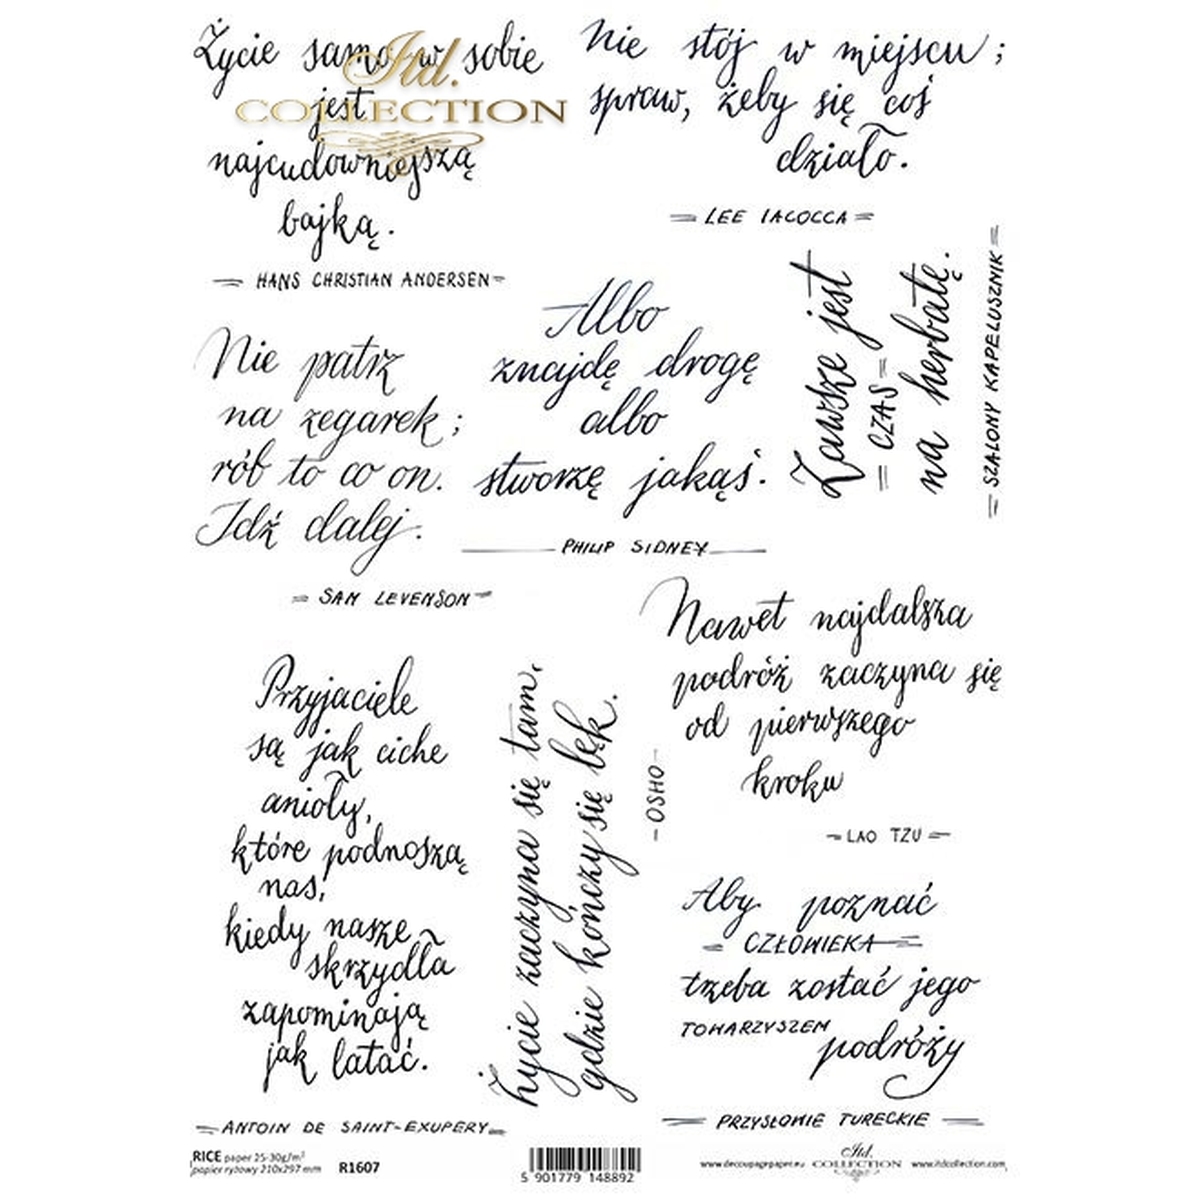 Życie samo w sobie
jest
najcudowniejszą
bajką.
= HANS CHRISTIAN ANDERSEN =
Itd.
COLLECTION
Nie stój w miejscu;
spraw, żeby się coś
działo.
= LEE IACOCCA =
Nie patrz
na zegarek;
rób to co on.
Idź dalej.
= SAM LEVENSON =
Albo
znajdę drogę
albo
stworzę jakąś.
PHILIP SIDNEY
Zawsze jest
= CZAS =
na herbatę.
= SZALONY KAPELUSZNIK =
Przyjaciele
są jak ciche
anioły,
które podnoszą
nas,
kiedy nasze
skrzydła
zapominają
jak latać.
= ANTOIN DE SAINT-EXUPERY =
Życie zaczyna się tam,
gdzie kończy się lęk.
- OSHO -
Nawet najdalsza
podróż zaczyna się
od pierwszego
kroku
= LAO TZU =
Aby poznać
= CZŁOWIEKA =
trzeba zostać jego
TOWARZYSZEM
podróży
= PRZYSŁOWIE TURECKIE =
RICE paper 25-30g/m²
papier ryżowy 210x297 mm R1607
5 901779 148892
www.decoupagepaper.eu Itd. COLLECTION www.itdcollection.com